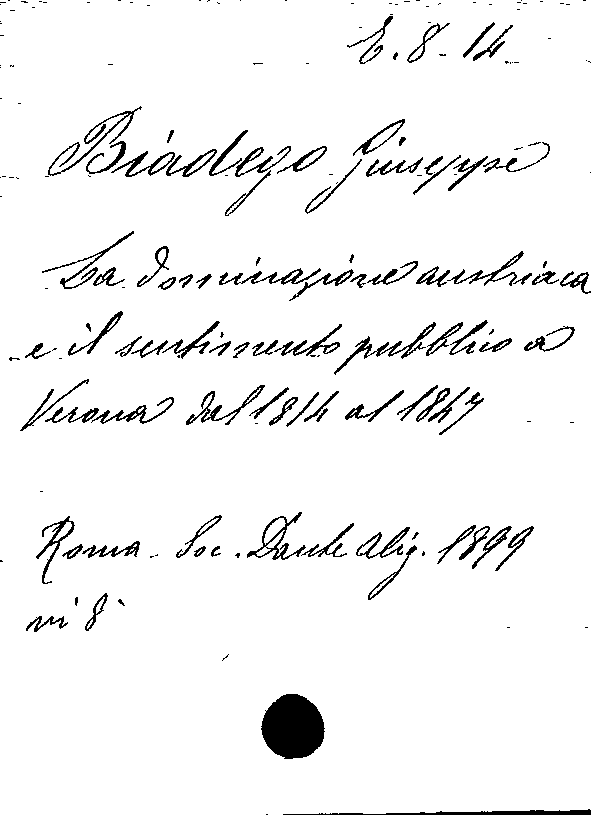 E. 8 - 14
Biadego Giuseppe
La dominazione austriaca
e il sentimento pubblico a
Verona dal 1814 al 1847
Roma - Soc. Dante Alig. 1899
in 8°